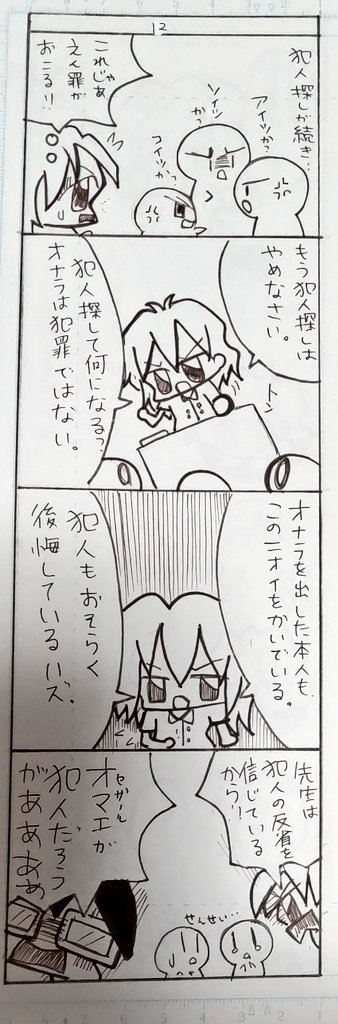 12
犯人探しが続き…
アイツかっ
ソイツ
かっ
コイツかっ
これじゃあ
えん罪が
おこる!!
もう犯人探しは
やめなさい。
トン
犯人探して何になるっ
オナラは犯罪ではない。
オナラを出した本人も、
このニオイをかいでいる。
犯人もおそらく
後悔しているハズ。
先生は
犯人の反省を
信じている
から!
せんせい…
オマエが
犯人だろう
がああああ